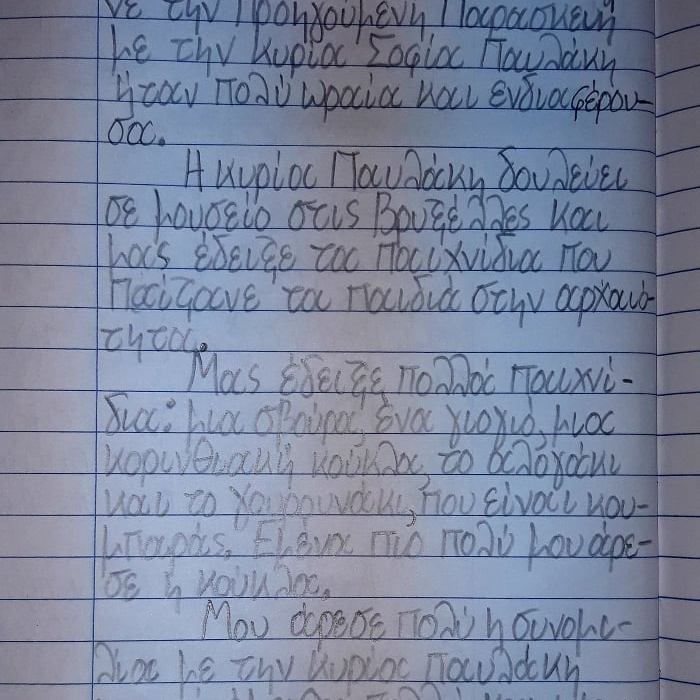 νε την Προηγούμενη Παρασκευή
με την κυρία Σοφία Παυλάκη
ήταν πολύ ωραία και ενδιαφέρου-
σα.
Η κυρία Παυλάκη δουλεύει
σε μουσείο στις Βρυξέλλες και
μας έδειξε τα παιχνίδια που
παίζανε τα παιδιά στην αρχαιό-
τητα.
Μας έδειξε πολλά παιχνί-
δια: μια σβούρα, ένα γιογιό, μια
κορινθιακή κούκλα, το αλογάκι
και το γουρουνάκι, που είναι κου-
μπαράς. Εμένα πιο πολύ μου άρε-
σε η κούκλα.
Μου άρεσε πολύ η συνομι-
λία με την κυρία Παυλάκη